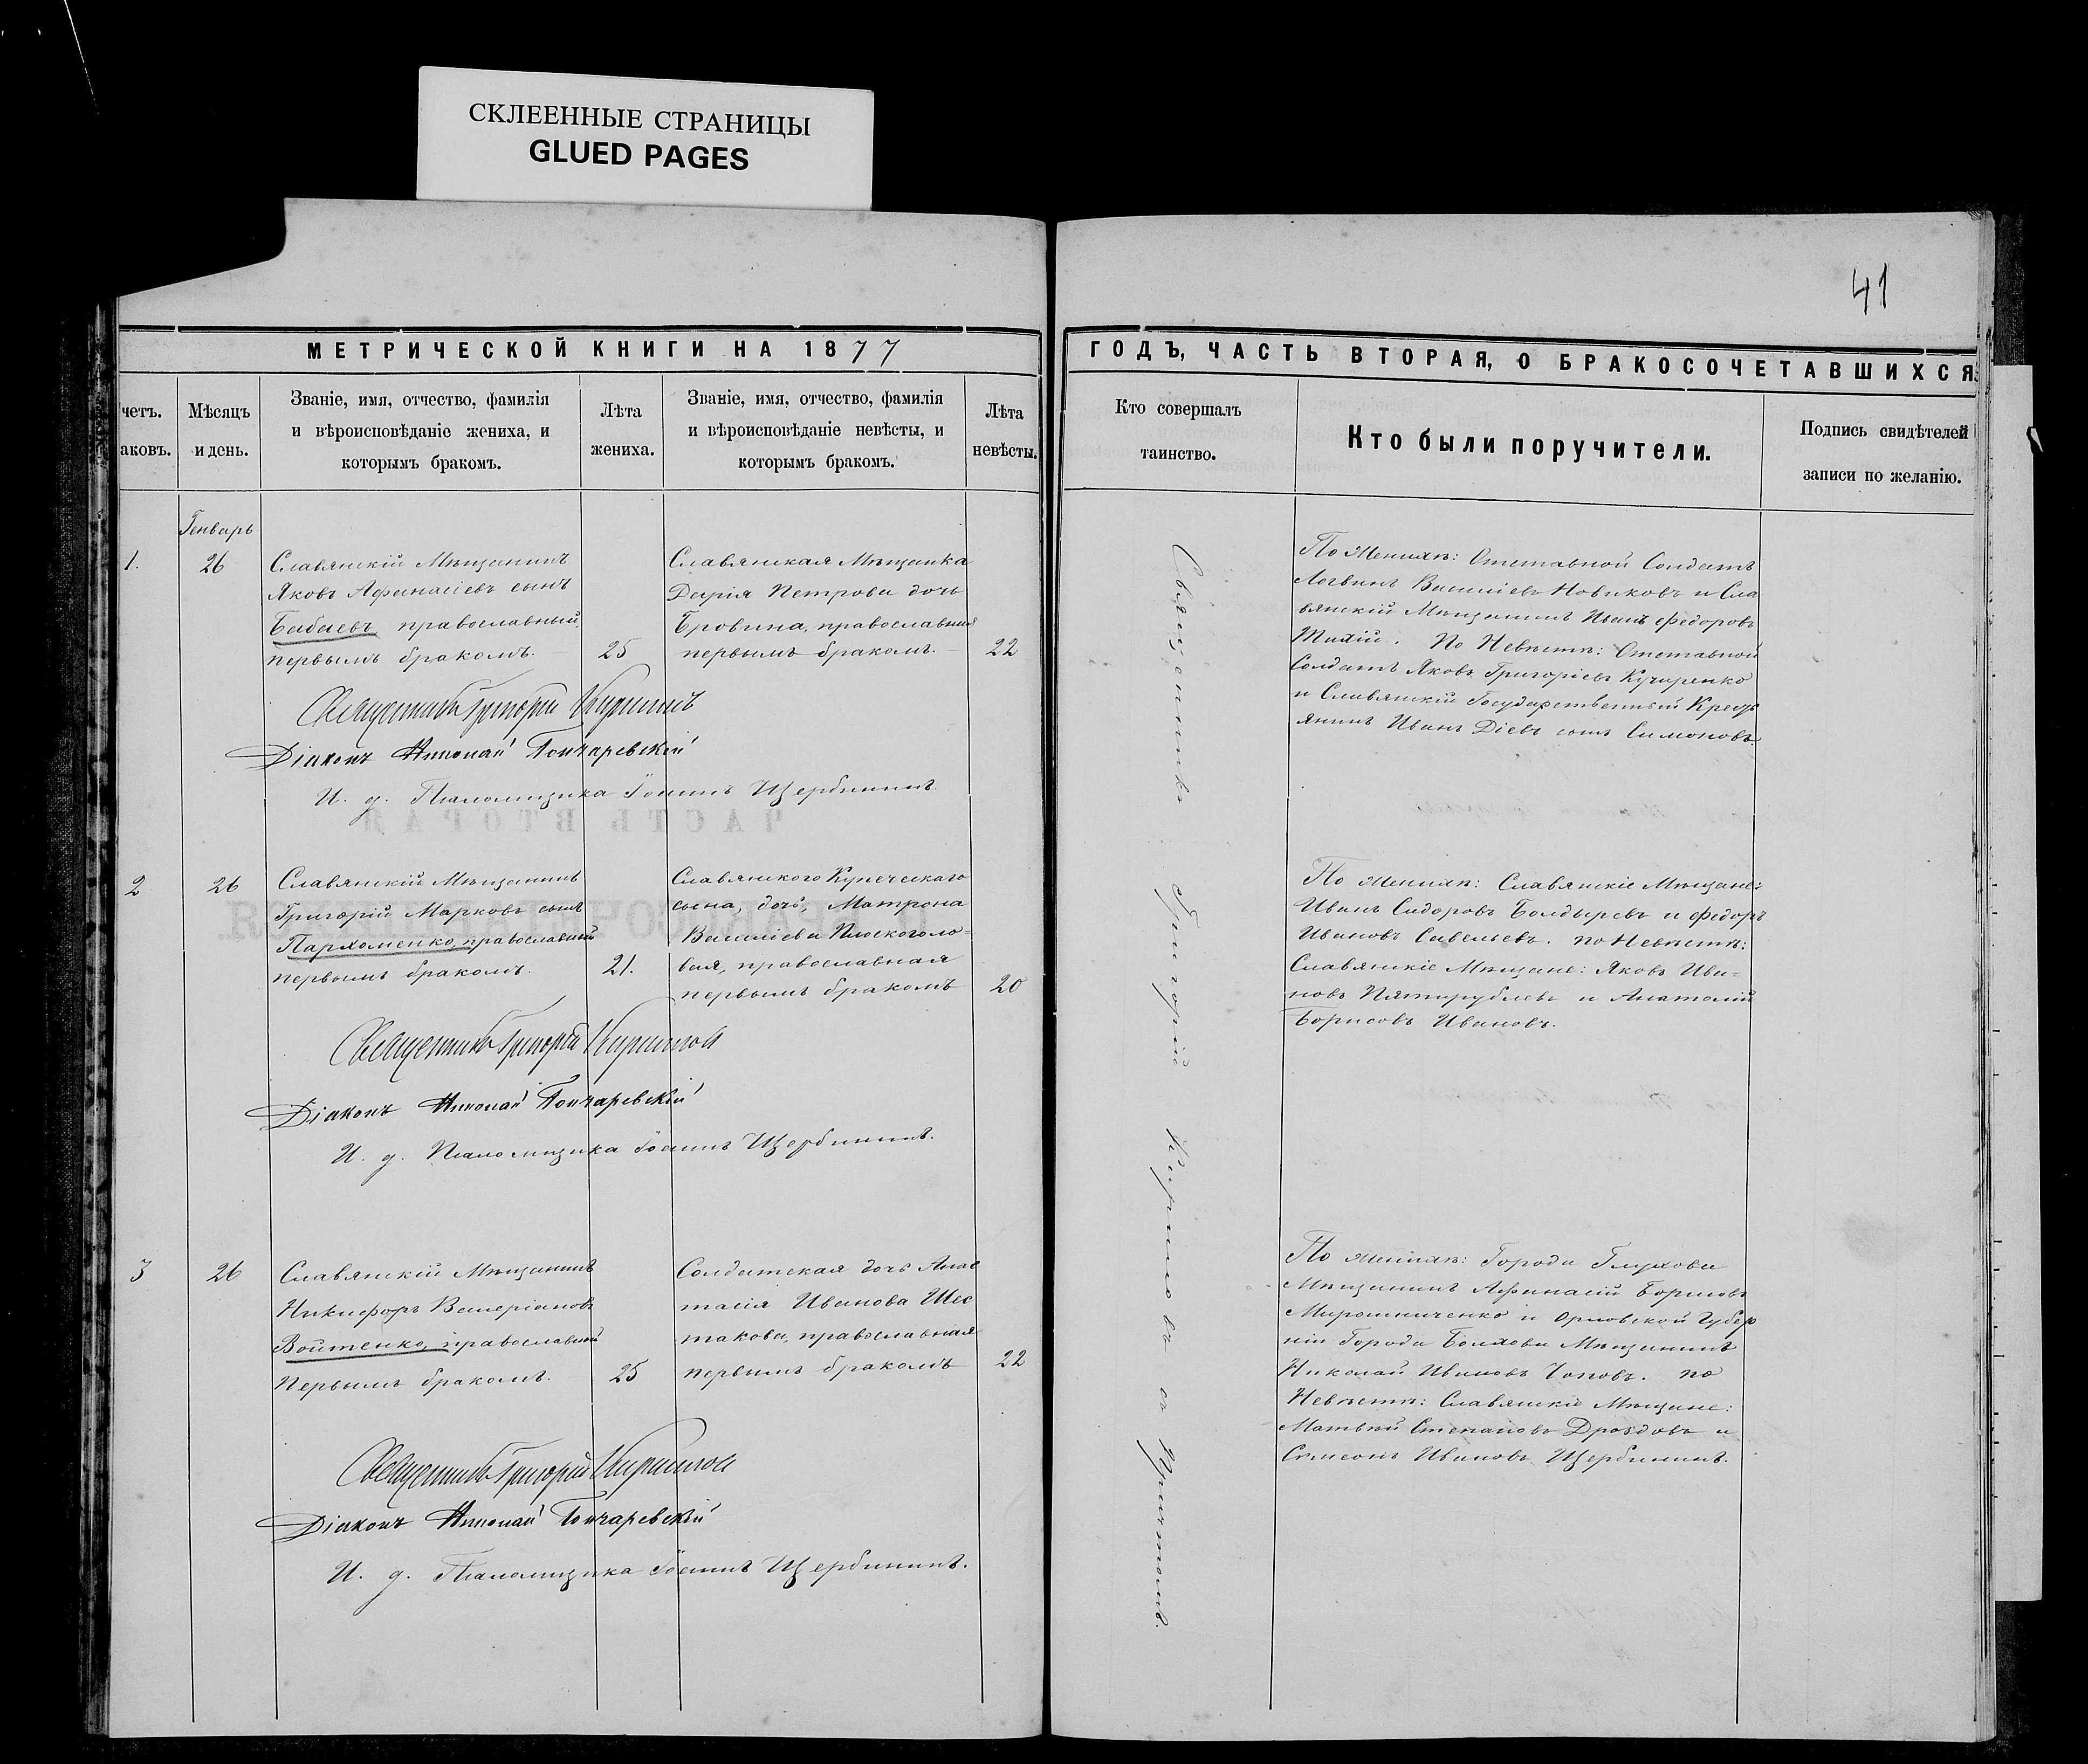 СКЛЕЕННЫЕ СТРАНИЦЫ
GLUED PAGES
41
МЕТРИЧЕСКОЙ КНИГИ НА 1877
ГОДЪ, ЧАСТЬ ВТОРАЯ, О БРАКОСОЧЕТАВШИХСЯ
четъ.
аковъ.
Мѣсяцъ
и день.
Званіе, имя, отчество, фамилія
и вѣроисповѣданіе жениха, и
которымъ бракомъ.
Лѣта
жениха.
Званіе, имя, отчество, фамилія
и вѣроисповѣданіе невѣсты, и
которымъ бракомъ.
Лѣта
невѣсты.
Кто совершалъ
таинство.
Кто были поручители.
Подпись свидѣтелей
записи по желанію.
Генварь
1.
26
Славянскій Мѣщанинъ
Яковъ Афанасіевъ сынъ
Бабаевъ православный,
первымъ бракомъ.
25
Славянская Мѣщанка
Дарія Петрова дочь
Бровина, православная
первымъ бракомъ.
22
Священникъ Григорій Кириловъ
Діаконъ Николай Гончаревскій
И. д. Псаломщика Іоаннъ Щербининъ.
По Женихѣ: Отставной Солдатъ
Логвинъ Василіевъ Новиковъ и Сла
вянскій Мѣщанинъ Иванъ Федоровъ
Тихій. По Невѣстѣ: Отставной
Солдатъ Яковъ Григоріевъ Кучеренко
и Славянскій Государственный Кресть
янинъ Иванъ Діевъ сынъ Симоновъ.
2
26
Славянскій Мѣщанинъ
Григорій Марковъ сынъ
Пархоменко, православный
первымъ бракомъ.
21.
Славянского Купеческаго
сына, дочь, Матрона
Василіева Плоскоголо-
вая, православная
первымъ бракомъ
20
Священникъ Григорій Кириловъ
Діаконъ Николай Гончаревскій
И. д. Псаломщика Іоаннъ Щербининъ.
По женихѣ: Славянскіе Мѣщане:
Иванъ Сидоровъ Болдыревъ и Федоръ
Ивановъ Савельевъ. по Невѣстѣ:
Славянскіе Мѣщане: Яковъ Ива=
новъ Пятирублевъ и Анатолій
Борисовъ Ивановъ.
3
26
Славянскій Мѣщанинъ
Никифоръ Валеріановъ
Войтенко, православный
Первымъ бракомъ.
25
Солдатская дочь Анас
тасія Иванова Шес
такова, православная
первымъ бракомъ
22
Священникъ Григорій Кириловъ
Діаконъ Николай Гончаревскій
И. д. Псаломщика Іоаннъ Щербининъ.
По женихѣ: Города Глухова
Мѣщанинъ Афанасій Борисовъ
Мирошниченко и Орловской Губер
ніи Города Болхова Мѣщанинъ
Николай Ивановъ Поповъ. по
Невѣстѣ: Славянскіе Мѣщане:
Матвѣй Степановъ Дроздовъ и
Сѵмеонъ Ивановъ Щербининъ.
Священникъ Григорій Кириловъ съ Причтомъ.